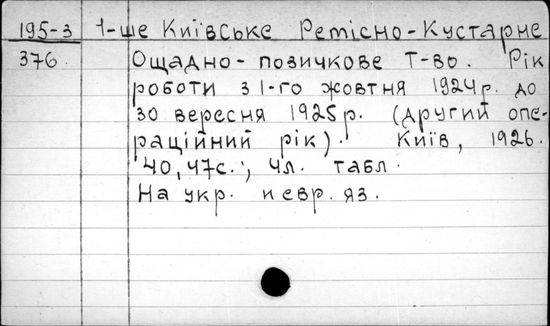 195-3 1-ше Київське Ремісно-Кустарне
376. Ощадно-позичкове Т-во. Рік
роботи з 1-го жовтня 1924р. до
30 вересня 1925р. (другий опе-
раційний рік). Київ, 1926.
40, 47с.; 4л. табл.
На укр. и евр. яз.